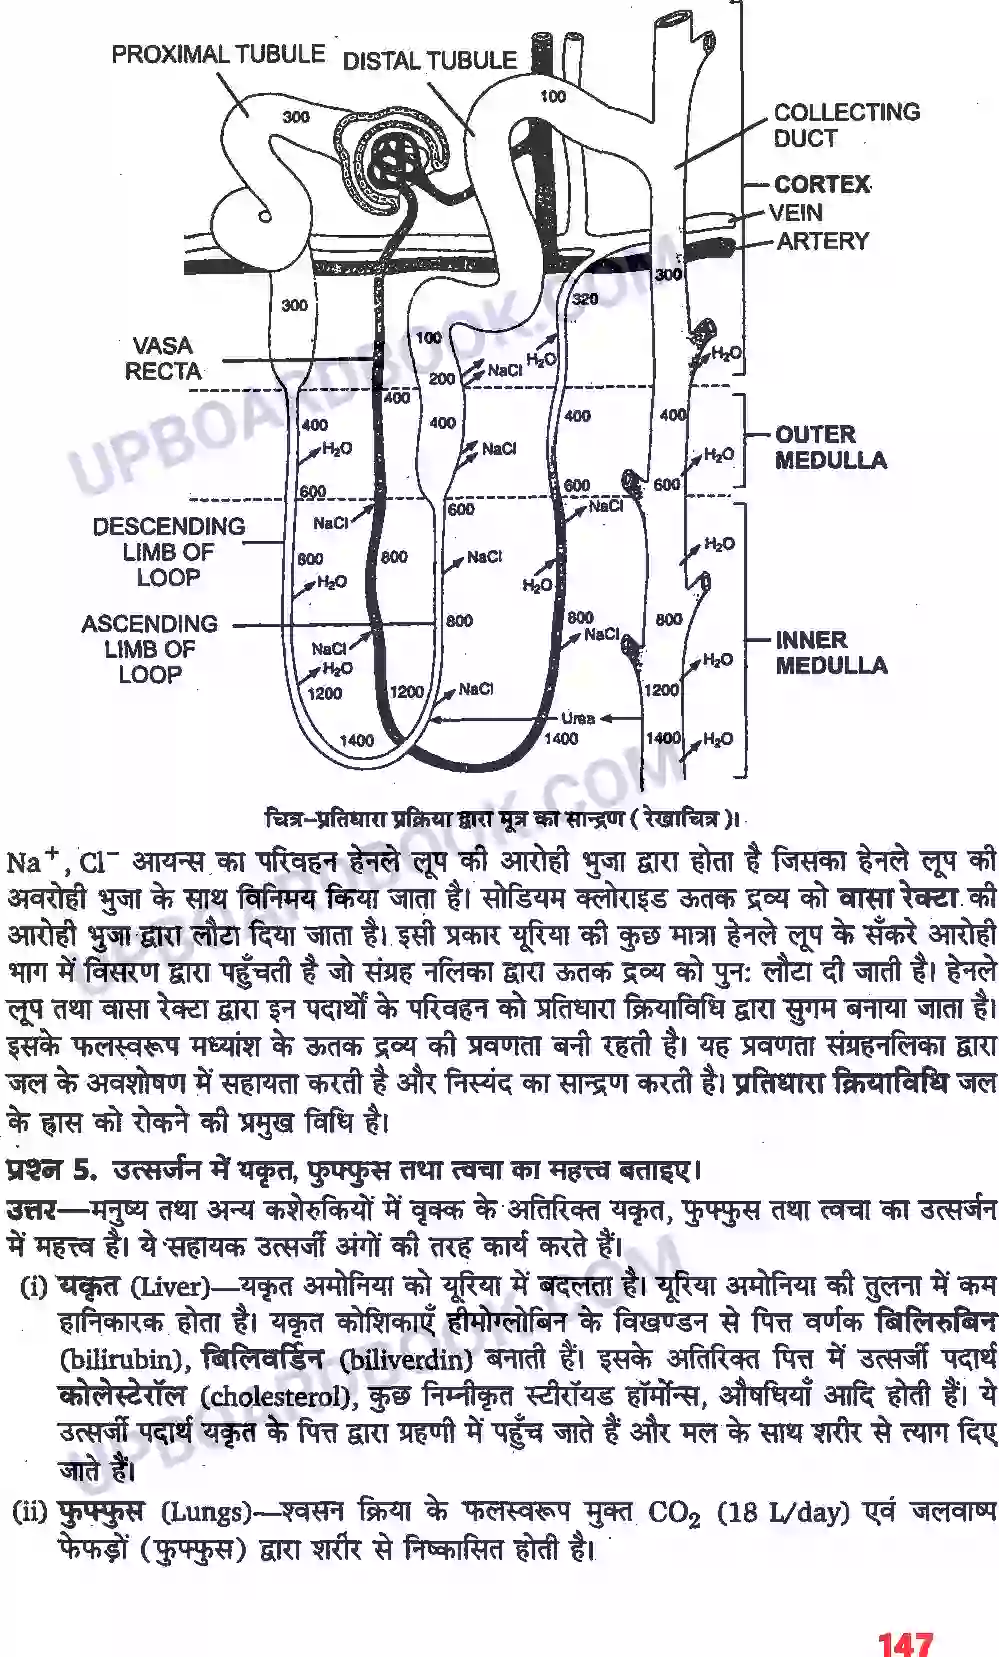 PROXIMAL TUBULE
DISTAL TUBULE
300
100
COLLECTING
DUCT
CORTEX
VEIN
ARTERY
300
320
300
VASA
RECTA
100
200
NaCl
H₂O
H₂O
400
400
400
400
400
OUTER
MEDULLA
H₂O
NaCl
H₂O
600
600
600
600
NaCl
NaCl
DESCENDING
LIMB OF
LOOP
800
800
NaCl
H₂O
H₂O
H₂O
ASCENDING
LIMB OF
LOOP
800
800
800
NaCl
NaCl
H₂O
H₂O
INNER
MEDULLA
1200
1200
NaCl
1200
Urea
1400
1400
1400
H₂O
चित्र–प्रतिधारा प्रक्रिया द्वारा मूत्र का सान्द्रण ( रेखाचित्र )।
Na⁺, Cl⁻ आयन्स का परिवहन हेनले लूप की आरोही भुजा द्वारा होता है जिसका हेनले लूप की
अवरोही भुजा के साथ विनिमय किया जाता है। सोडियम क्लोराइड ऊतक द्रव्य को वासा रेक्टा की
आरोही भुजा द्वारा लौटा दिया जाता है। इसी प्रकार यूरिया की कुछ मात्रा हेनले लूप के सँकरे आरोही
भाग में विसरण द्वारा पहुँचती है जो संग्रह नलिका द्वारा ऊतक द्रव्य को पुन: लौटा दी जाती है। हेनले
लूप तथा वासा रेक्टा द्वारा इन पदार्थों के परिवहन को प्रतिधारा क्रियाविधि द्वारा सुगम बनाया जाता है।
इसके फलस्वरूप मध्यांश के ऊतक द्रव्य की प्रवणता बनी रहती है। यह प्रवणता संग्रहनलिका द्वारा
जल के अवशोषण में सहायता करती है और निस्यंद का सान्द्रण करती है। प्रतिधारा क्रियाविधि जल
के ह्रास को रोकने की प्रमुख विधि है।
प्रश्न 5. उत्सर्जन में यकृत, फुफ्फुस तथा त्वचा का महत्त्व बताइए।
उत्तर—मनुष्य तथा अन्य कशेरुकियों में वृक्क के अतिरिक्त यकृत, फुफ्फुस तथा त्वचा का उत्सर्जन
में महत्त्व है। ये सहायक उत्सर्जी अंगों की तरह कार्य करते हैं।
(i) यकृत (Liver)—यकृत अमोनिया को यूरिया में बदलता है। यूरिया अमोनिया की तुलना में कम
हानिकारक होता है। यकृत कोशिकाएँ हीमोग्लोबिन के विखण्डन से पित्त वर्णक बिलिरुबिन
(bilirubin), बिलिवर्डिन (biliverdin) बनाती हैं। इसके अतिरिक्त पित्त में उत्सर्जी पदार्थ
कोलेस्टेरॉल (cholesterol), कुछ निम्नीकृत स्टीरॉयड हॉर्मोन्स, औषधियाँ आदि होती हैं। ये
उत्सर्जी पदार्थ यकृत के पित्त द्वारा ग्रहणी में पहुँच जाते हैं और मल के साथ शरीर से त्याग दिए
जाते हैं।
(ii) फुफ्फुस (Lungs)—श्वसन क्रिया के फलस्वरूप मुक्त CO₂ (18 L/day) एवं जलवाष्प
फेफड़ों (फुफ्फुस) द्वारा शरीर से निष्कासित होती है।
147
UPBOARDBOOK.COM
UPBOARDBOOK.COM
UPBOARDBOOK.COM